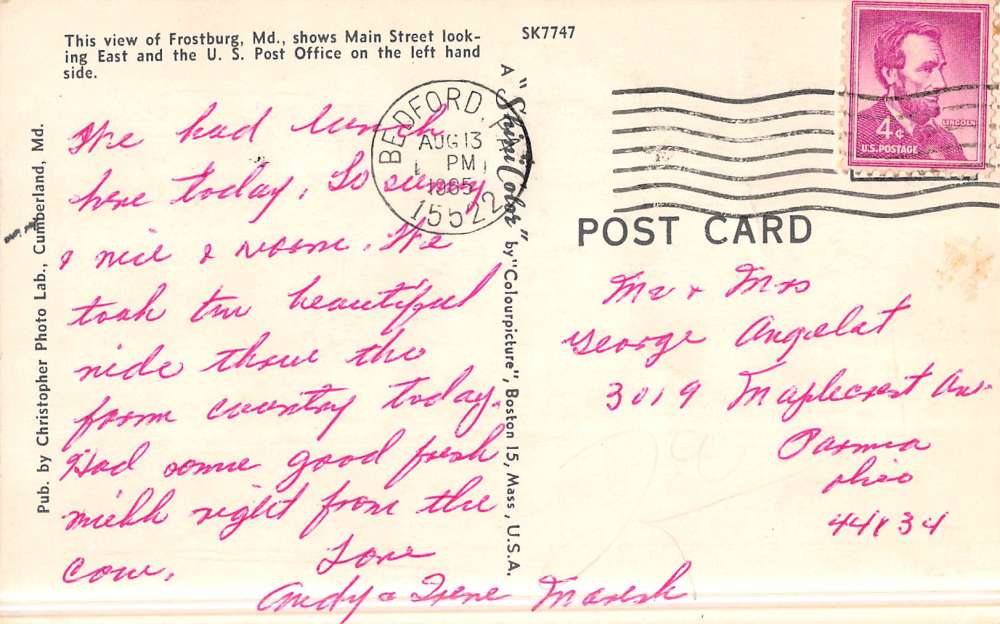 This view of Frostburg, Md., shows Main Street look-
ing East and the U. S. Post Office on the left hand
side.
SK7747
Pub. by Christopher Photo Lab., Cumberland, Md.
A "Shini-Color" by "Colourpicture", Boston 15, Mass., U.S.A.
BEDFORD, PA
AUG 13
PM
1965
15522
4¢
LINCOLN
U.S. POSTAGE
POST CARD
We had lunch
here today. So sunny
& nice & warm. We
took the beautiful
ride thru the
farm country today.
Had some good fresh
milk right from the
cow.
Love
Andy & Irene Maresh
Mr & Mrs
George Angelat
3019 Maplecrest Ave
Parma
Ohio
44134